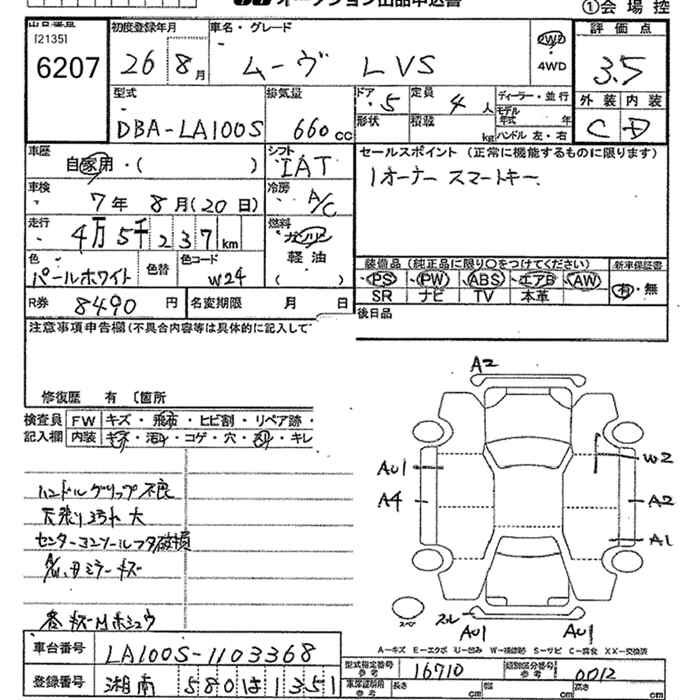 オークション出品申込書
①会場控
出品番査
[2135]
6207
初度登録年月
26 8月
車名・グレード
ムーヴ LVS
2WD
4WD
評価点
3.5
外装 内装
C D
型式
DBA-LA100S
排気量
660cc
ドア
5
定員
4人
形状
積載
kg
ディーラー・並行
モデル
年式 年
ハンドル 左・右
車歴
自家用・( )
シフト
IAT
セールスポイント (正常に機能するものに限ります)
1オーナー スマートキー
車検
7年 8月(20日)
冷房
A/C
走行
4万5千237km
燃料
ガソリン
軽油
( )
色
パールホワイト
色替
色コード
W24
装備品(純正品に限り○をつけてください)
新車保証書
PS PW ABS エアB AW
SR ナビ TV 本革
有・無
R券 8490円
名変期限 月 日
後日品
注意事項申告欄(不具合内容等は具体的に記入して
修復歴 有 〔箇所
検査員 FW キズ・飛石・ヒビ割・リペア跡・
記入欄 内装 キズ・汚れ・コゲ・穴・・キレ
ハンドルグリップ不良
天張り汚れ大
センターコンソールフタ破損
ミラーキズ
ホシュウ
A2
AU1
W2
A4
A2
A1
スレ
スペア
AU1 AU1
A-キズ E-エクボ U-凹み W-補修跡 S-サビ C-腐食 XX-交換済
車台番号 LA100S-1103368
登録番号 湘南 580 は 1351
型式指定番号
参考
16710
類別区分番号
参考
0012
車庫証明用
参考
長さ cm
幅 cm
高さ cm